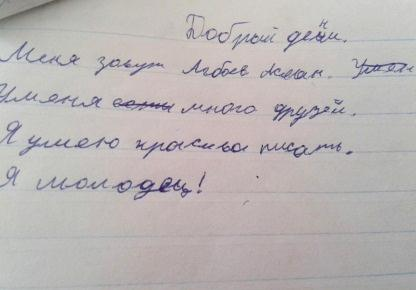 Добрый день.
Меня зовут Жан.
Уменя много друзей.
Я умею красива писать.
Я молодец!